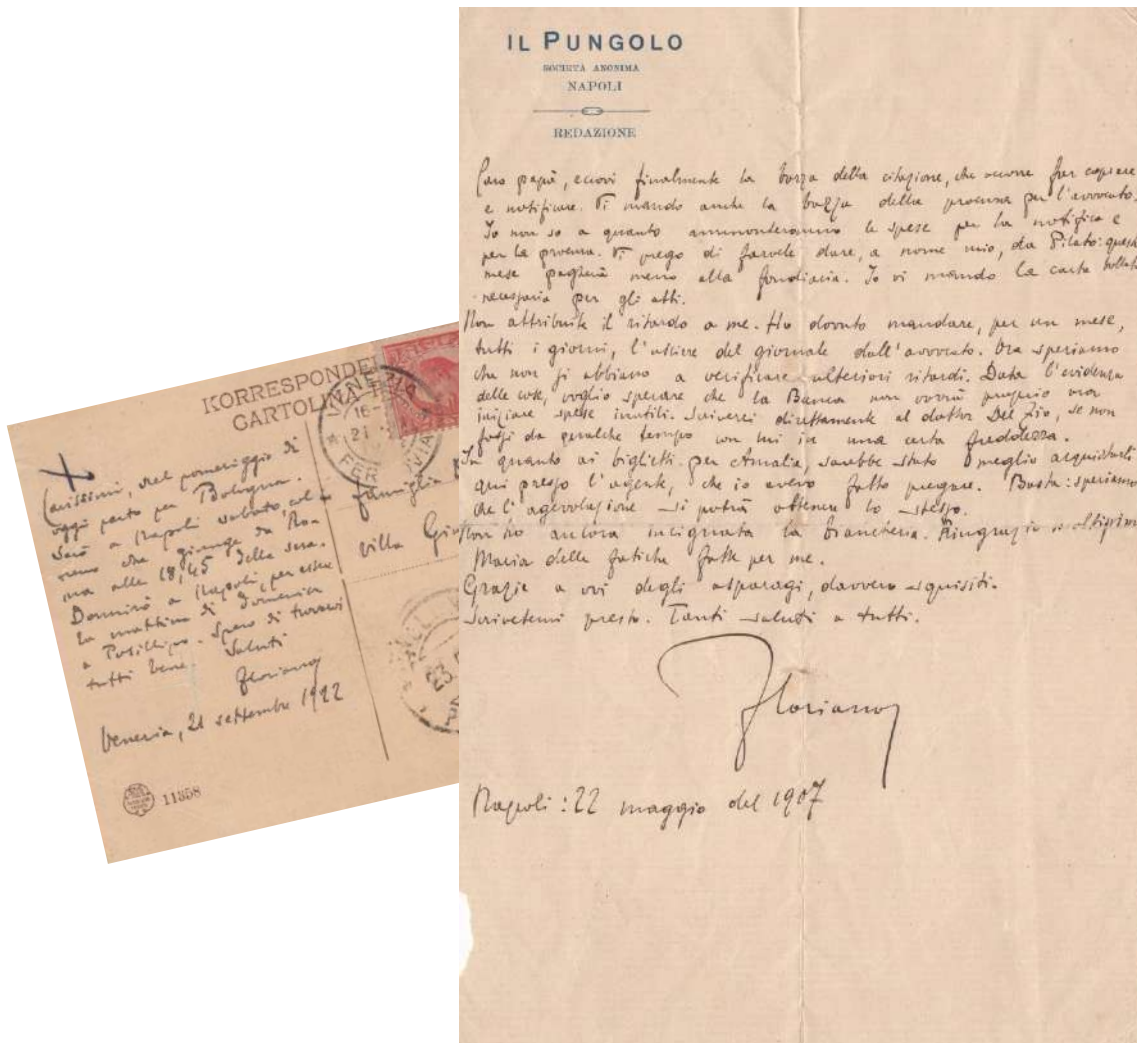 KORRESPONDE
CARTOLINA
Carissimi, nel pomeriggio di
oggi parto per Bologna.
Sarò a Napoli sabato, col
treno che giunge da Ro-
ma alle 18,45 della sera.
Dormirò a Napoli, per esse
la mattina di domenica
a Posillipo. Spero di trovarvi
tutti bene. Saluti
Floriano
Venezia, 21 settembre 1922
famiglia
villa Gio
11358
IL PUNGOLO
SOCIETÀ ANONIMA
NAPOLI
REDAZIONE
Caro papà, eccovi finalmente la bozza della citazione, che occorre far copiare
e notificare. Vi mando anche la bozza della procura per l'avvocato.
Io non so a quanto ammonteranno le spese per la notifica e
per la procura. Vi prego di farvele dare, a nome mio, da Pilato: questo
mese pagherà meno alla fondiaria. Io vi mando la carta bollata
necessaria per gli atti.
Non attribuite il ritardo a me. Ho dovuto mandare, per un mese,
tutti i giorni, l'usciere del giornale dall'avvocato. Ora speriamo
che non si abbiano a verificare ulteriori ritardi. Data l'evidenza
delle cose, voglio sperare che la Banca non vorrà proprio ora
iniziare spese inutili. Scriverei direttamente al dottor Del Zio, se non
fossi da qualche tempo con lui in una certa freddezza.
In quanto ai biglietti per Amalia, sarebbe stato meglio acquistarli
qui presso l'agente, che io avevo fatto pregare. Basta: speriamo
che l'agevolazione si potrà ottenere lo stesso.
Non ho ancora la biancheria. Ringrazio moltissimo
Maria delle fatiche fatte per me.
Grazie a voi degli asparagi, davvero squisiti.
Scrivetemi presto. Tanti saluti a tutti.
Floriano
Napoli: 22 maggio del 1907